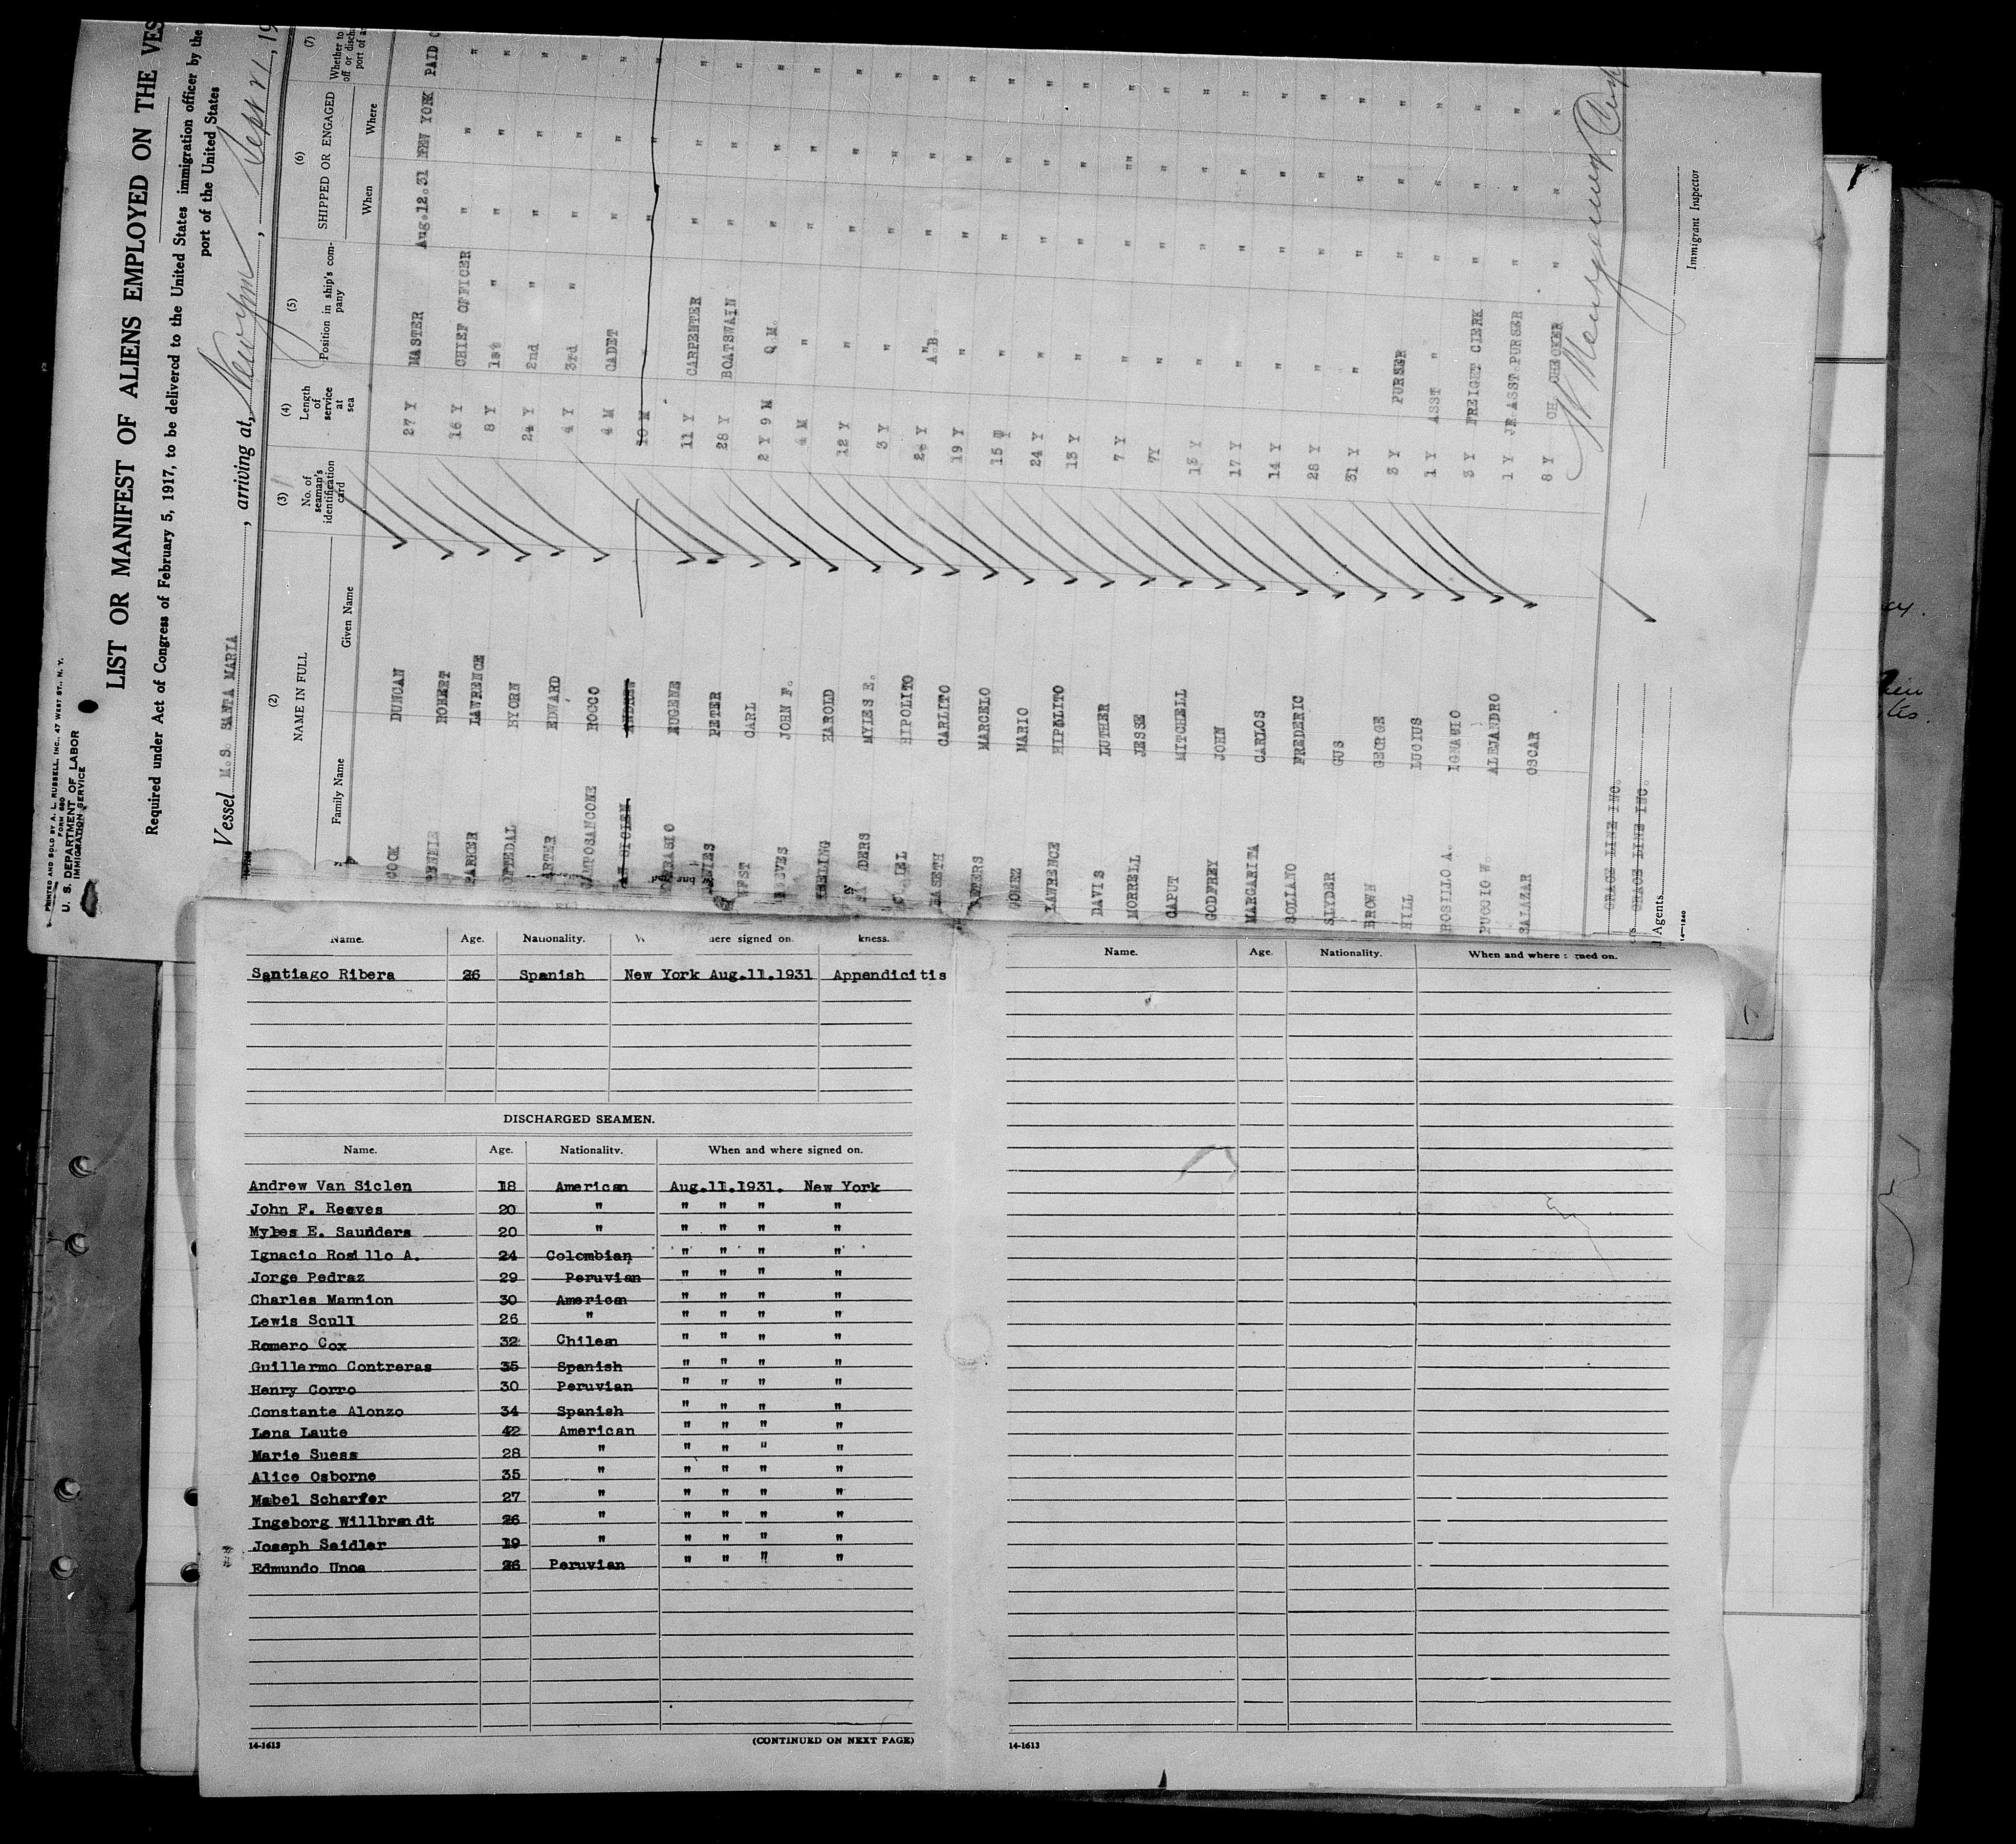 PRINTED AND SOLD BY A. L. RUSSELL, INC., 47 WEST ST., N. Y.
FORM 680
U. S. DEPARTMENT OF LABOR
IMMIGRATION SERVICE
LIST OR MANIFEST OF ALIENS EMPLOYED ON THE VES
Required under Act of Congress of February 5, 1917, to be delivered to the United States immigration officer by the
port of the United States
Vessel M.S. SANTA MARIA, arriving at, , Sept , 19
(2) (3) (4) (5) (6) (7)
NAME IN FULL No. of seaman's identification card Length of service at sea Position in ship's company SHIPPED OR ENGAGED Whether to
off or disch
port of a
Family Name Given Name When Where
COCK DUNCAN 27 Y MASTER Aug.12.31 NEW YORK PAID
ROBERT 16 Y CHIEF OFFICER " " "
PARKER LAWRENCE 8 Y 1st " " " "
BYORN 24 Y 2nd " " " "
ARTER EDWARD 4 Y 3rd " " " "
CAMPOSANCONE ROCCO 4 M CADET " " "
AN SICLEN ANDREW 10 M " " " "
EUGENE 11 Y CARPENTER " " "
PETER 28 Y BOATSWAIN " " "
WEST CARL 2 Y 9 M Q.M. " " "
REEVES JOHN F. 4 M " " " "
HAROLD 12 Y " " " "
DERS MYLES E. 3 Y " " " "
HIPOLITO A.B. " " "
BASETH CARLITO 19 Y " " " "
PETERS MARCELO 15 Y " " " "
GOMEZ MARIO 24 Y " " " "
LAWRENCE HIPOLITO 13 Y " " " "
DAVIS LUTHER 7 Y " " " "
MORRELL JESSE 7Y " " " "
CAPUT MITCHELL " " " "
GODFREY JOHN 17 Y " " " "
MARGARITA CARLOS 14 Y " " " "
SOLIANO FREDERIC 28 Y " " " "
SLYDER GUS 31 Y " " " "
BROWN GEORGE 3 Y PURSER " " "
HILL LUCIUS 1 Y ASST " " " "
ROSILLO A. IGNACIO 3 Y FREIGHT CLERK " " "
PUCCIO W. ALEJANDRO 1 Y JR ASST.PURSER " " "
SALAZAR OSCAR 8 Y CH. CHECKER " " "
GRACE LINE INC.
GRACE LINE INC.
Agents
14-1240
Immigrant Inspector
Name. Age. Nationality. here signed on. kness.
Santiago Ribera 26 Spanish New York Aug.11.1931 Appendicitis
DISCHARGED SEAMEN.
Name. Age. Nationality. When and where signed on.
Andrew Van Siclen 18 American Aug.11.1931. New York
John F. Reeves 20 " " " " "
Myles E. Saunders 20 " " " " "
Ignacio Rosillo A. 24 Colombian " " " "
Jorge Pedraz 29 Peruvian " " " "
Charles Mannion 30 American " " " "
Lewis Scull 26 " " " " "
Romero Cox 32 Chilean " " " "
Guillermo Contreras 35 Spanish " " " "
Henry Corro 30 Peruvian " " " "
Constante Alonzo 34 Spanish " " " "
Lena Laute 42 American " " " "
Marie Suess 28 " " " " "
Alice Osborne 35 " " " " "
Mabel Scharfer 27 " " " " "
Ingeborg Willbrandt 26 " " " " "
Joseph Seidler 19 " " " " "
Edmundo Unoa 26 Peruvian " " " "
14-1613
(CONTINUED ON NEXT PAGE)
Name. Age. Nationality. When and where signed on.
14-1613